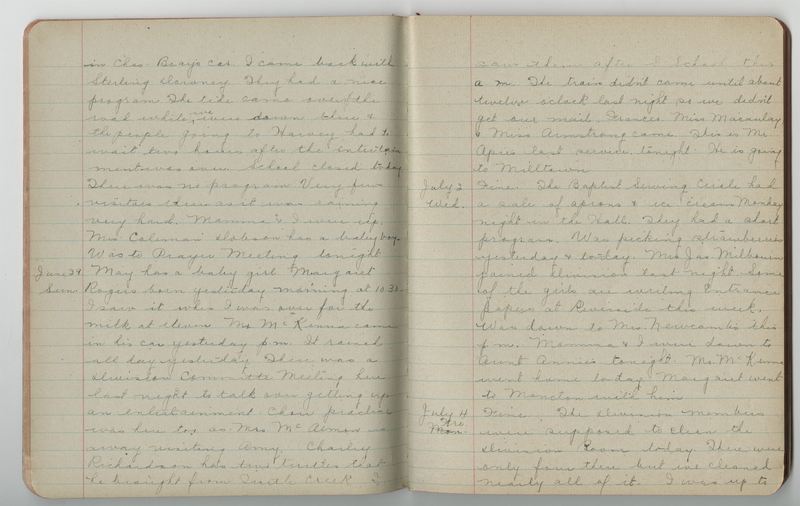 in Chas. Beay's car. I came back with
Sterling They had a nice
program. The tide came over the
road while we were down there &
the people going to Harvey had to
wait two hours after the entertain
ment was over. School closed today
There was no program. Very few
visitors there as it was raining
very hard. Mamma & I were up.
Mrs Coleman Dobson has a baby boy.
Was to Prayer Meeting tonight
June 29 May has a baby girl "Margaret
Sun. Rogers born yesterday morning at 10.30
I saw it when I was over for the
milk at eleven Mr McKenna came
in his car yesterday p.m. It rained
all day yesterday. There was a
Division Committe Meeting here
last night to talk over getting up
an entertainment. Choir practice
was here too as Mrs McAlmon is
away visiting Amy. Charley
Richardson has two turtles that
he brought from Turtle Creek. I
saw them after S School this
a m. The train didn't come until about
twelve oclock last night so we didn't
get our mail. Frances Miss Macaulay
& Miss Armstrong came. This is Mr
last service tonight. He is going
to Milltown
July 2 Fine. The Baptist Sewing Circle had
Wed. a sale of aprons & ice cream Monday
night in the Hall. They had a short
program. Was picking strawberries
yesterday & to-day. Mrs Jas. Milbourn
joined Division last night. Some
of the girls are writing Entrance
papers at Riverside this week.
Was down to Mrs Newcombs this
p m. Mamma & I were down to
Aunt Annies tonight. Mr McKenna
went home today. Margaret went
to Moncton with him
July 4 Fine. The Division members
Fri. Mon. were supposed to clean the
Division Room today. There were
only four there but we cleaned
nearly all of it. I was up to